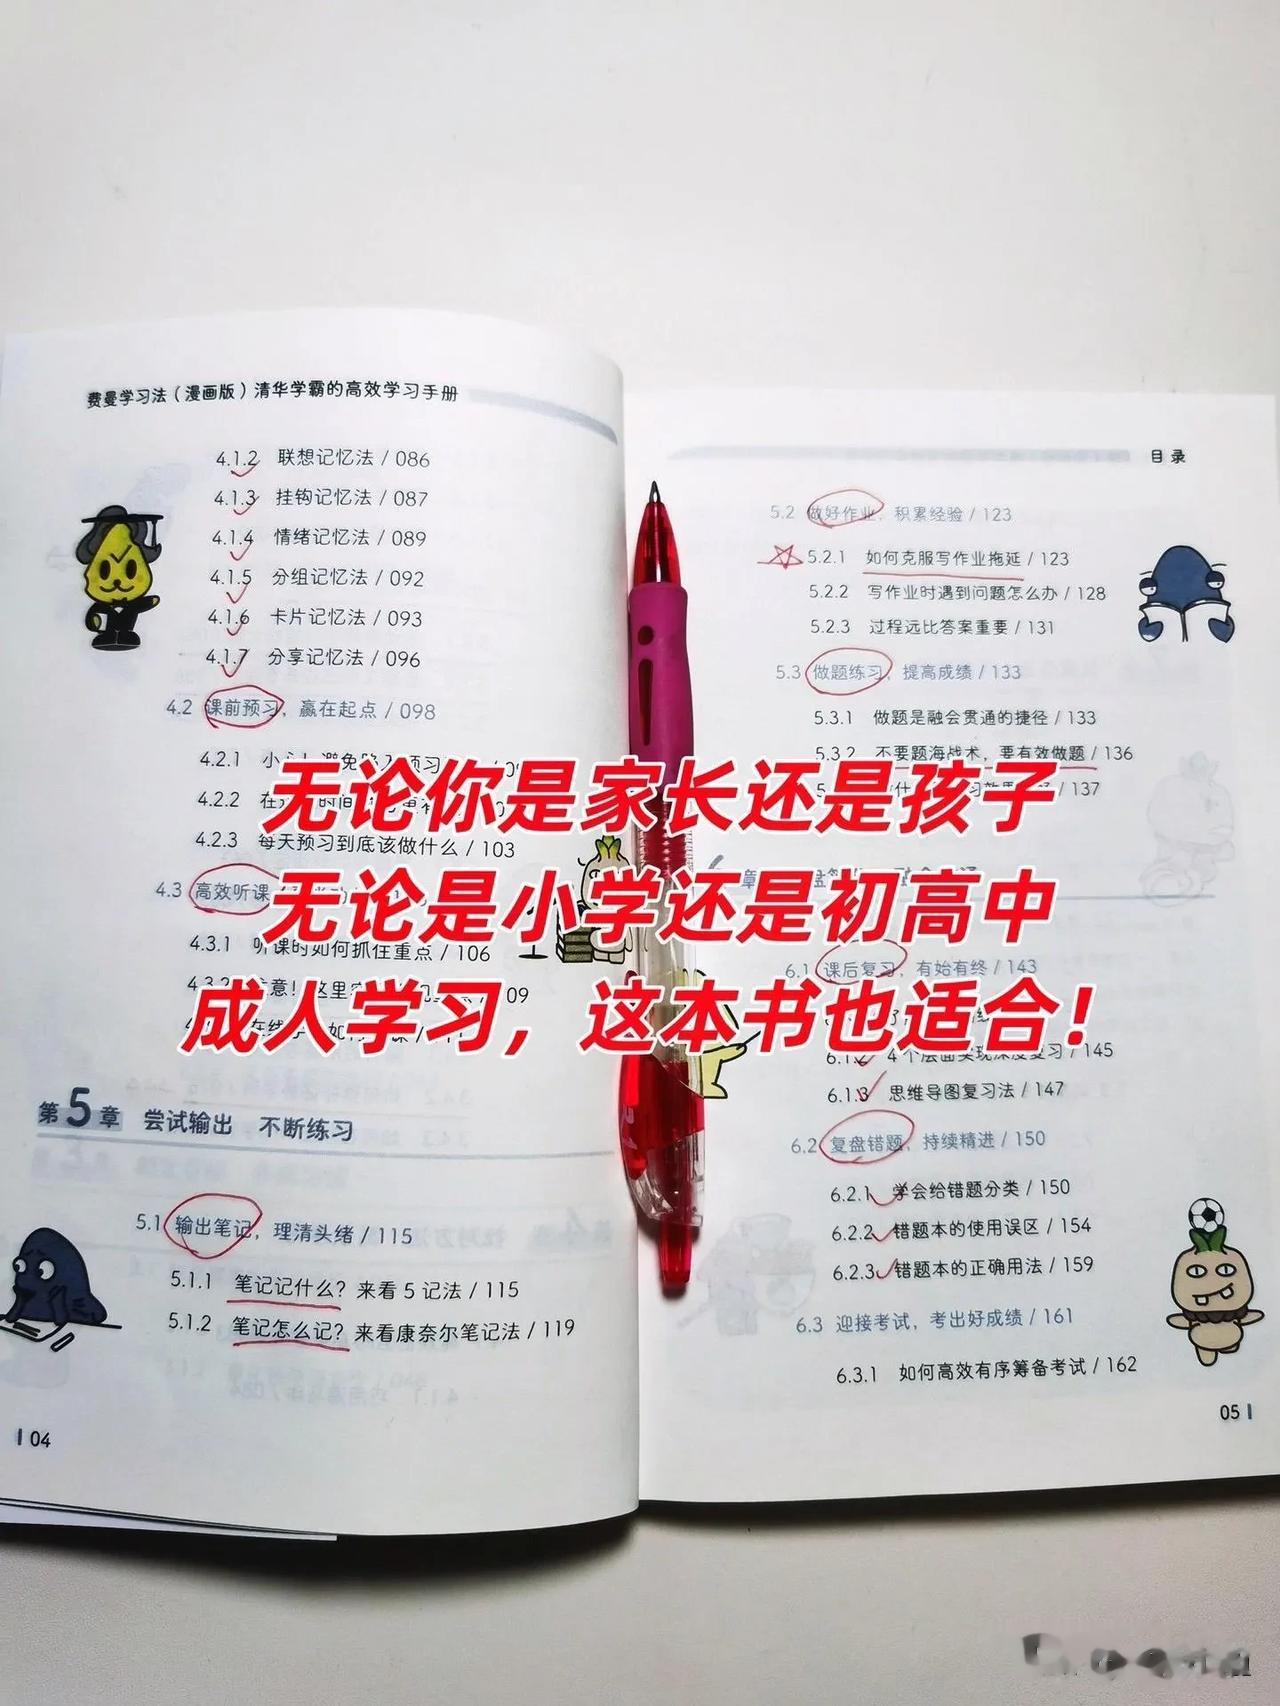 费曼学习法（漫画版）清华学霸的高效学习手册
4.1.2 联想记忆法 / 086
4.1.3 挂钩记忆法 / 087
4.1.4 情绪记忆法 / 089
4.1.5 分组记忆法 / 092
4.1.6 卡片记忆法 / 093
4.1.7 分享记忆法 / 096
4.2 课前预习，赢在起点 / 098
4.2.1
4.2.2
4.2.3 每天预习到底该做什么 / 103
4.3 高效听课
4.3.1 听课时如何抓住重点 / 106
4.3.2
第5章 尝试输出 不断练习
5.1 输出笔记，理清头绪 / 115
5.1.1 笔记记什么？来看 5 记法 / 115
5.1.2 笔记怎么记？来看康奈尔笔记法 / 119
04
目录
5.2 做好作业，积累经验 / 123
5.2.1 如何克服写作业拖延 / 123
5.2.2 写作业时遇到问题怎么办 / 128
5.2.3 过程远比答案重要 / 131
5.3 做题练习，提高成绩 / 133
5.3.1 做题是融会贯通的捷径 / 133
5.3.2 不要题海战术，要有效做题 / 136
/ 137
6.1 课后复习，有始有终 / 143
6.1.2 4 个层面实现深度复习 / 145
6.1.3 思维导图复习法 / 147
6.2 复盘错题，持续精进 / 150
6.2.1 学会给错题分类 / 150
6.2.2 错题本的使用误区 / 154
6.2.3 错题本的正确用法 / 159
6.3 迎接考试，考出好成绩 / 161
6.3.1 如何高效有序筹备考试 / 162
05
无论你是家长还是孩子
无论是小学还是初高中
成人学习，这本书也适合！